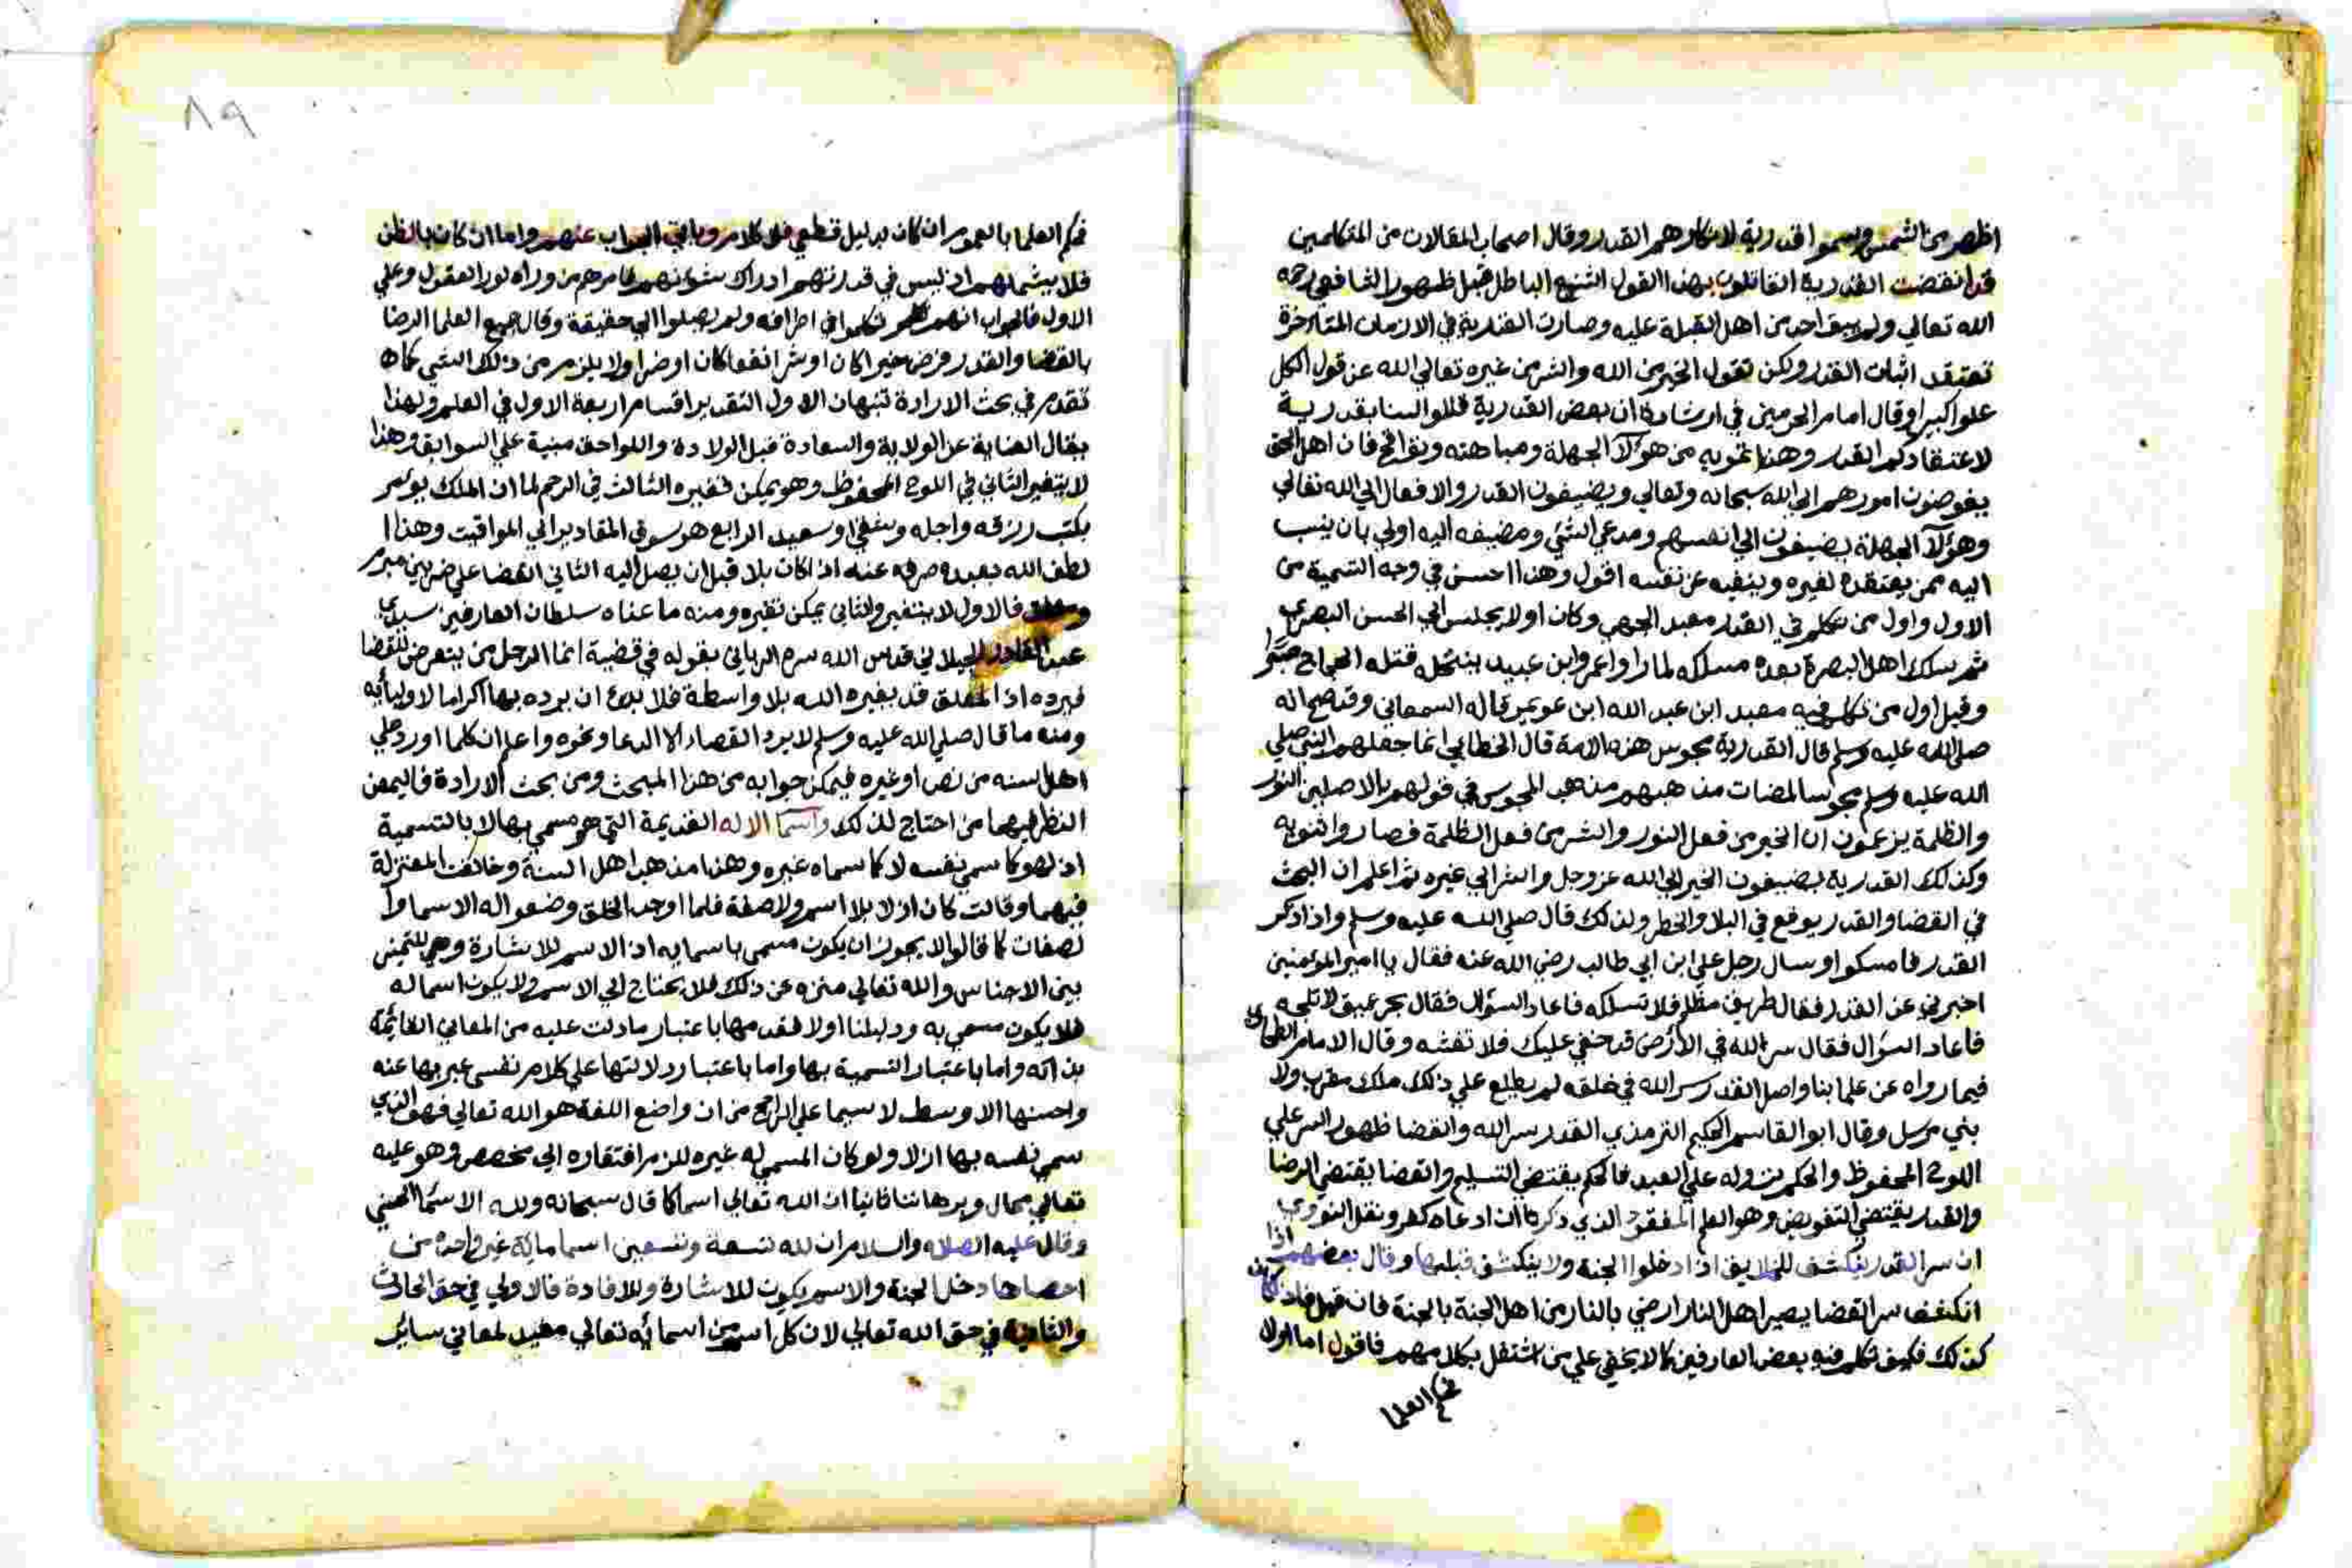 اظهر من الشمس وسموا قدرية لانكارهم القدر وقال اصحاب المقالات من المتكلمين
قد انقضت القدرية القائلون بهذا القول الشنيع الباطل قبل ظهور الشافعي رحمه
الله تعالي ولم يبق احد من اهل القبلة عليه وصارت القدرية في الازمان المتاخرة
تعتقد اثبات القدر ولكن تقول الخير من الله والشر من غيره تعالي الله عن قول الكل
علوا كبيرا وقال امام الحرمين في ارشاده ان بعض القدرية قالوا لسنا بقدرية
لاعتقادكم القدر وهذا تمويه من هولآ الجهلة ومباهته وتواقح فان اهل الحق
يفوضون امورهم الي الله سبحانه وتعالي ويضيفون القدر والافعال الي الله تعالي
وهؤلآ الجهلة يضيفون الي انفسهم ومدعي الشي ومضيفه اليه اولي بان ينسب
اليه ممن يعتقده لغيره وينفيه عن نفسه اقول وهذا احسن في وجه التسمية من
الاول واول من تكلم في القدر معبد الجهني وكان اولا يجلس الي الحسن البصري
ثم سلك اهل البصرة بعده مسلكه لما راوا عمرو ابن عبيد ينتحله قتله الحجاج صبرا
وقيل اول من تكلم فيه معبد ابن عبد الله ابن عويمر قاله السمعاني وقد صح انه
صلي الله عليه وسلم قال القدرية مجوس هذه الامة قال الخطابي انما جعلهم النبي صلي
الله عليه وسلم مجوسا لمضات مذهبهم مذهب المجوس في قولهم بالاصلين النور
والظلمة يزعمون ان الخير من فعل النور والشر من فعل الظلمة فصاروا ثنويه
وكذلك القدرية يضيفون الخير الي الله عز وجل والشر الي غيره ثم اعلم ان البحث
في القضا والقدر يوقع في البلا والخطر ولذلك قال صلي الله عليه وسلم واذا ذكر
القدر فامسكوا وسال رجل علي ابن ابي طالب رضي الله عنه فقال يا امير المؤمنين
اخبرني عن القدر فقال طريق مظلم فلا تسلكه فاعاد السؤال فقال بحر عميق لا تلجه
فاعاد السؤال فقال سر الله في الارض قد خفي عليك فلا تفشه وقال الامام الطحاوي
فيما رواه عن علمائنا واصل القدر سر الله في خلقه لم يطلع علي ذلك ملك مقرب ولا
نبي مرسل وقال ابو القاسم الحكيم الترمذي القدر سر الله والقضا ظهور السر علي
اللوح المحفوظ والحكم نزوله علي العبد فالحكم يقتضي التسليم والقضا يقتضي الرضا
والقدر يقتضي التفويض وهو العلم المفقود الذي ذكر ان ادعاه كفر ونقل النووي
ان سر القدر ينكشف للخلايق اذا دخلوا الجنة ولا ينكشف قبلها وقال بعضهم اذا
انكشف سر القضا يصير اهل النار ارضي بالنار من اهل الجنة بالجنة فان قيل فاذا كان
كذلك فكيف تكلم فيه بعض العارفين كما لا يخفي علي من اشتغل بكلامهم فاقول اما اولا
فحكم العلما
٨٩
فحكم العلما بالعموم ان كان بدليل قطعي فلا كلام وباقي الجواب عنهم واما ان كان بالظن
فلا يشملهم اذ ليس في قدرتهم ادراك شؤنهم فامرهم من وراء طور العقول وعلي
الاول فالجواب انهم تكلموا في اطرافه ولم يصلوا الي حقيقة وقال جميع العلما الرضا
بالقضا والقدر فرض خيرا كان او شرا نفعا كان او ضرا ولا يلزم من ذلك الشي كما
تقدم في بحث الارادة تنبهان الاول التقدير اقسام اربعة الاول في العلم ولهذا
يقال العناية عن الولاية والسعادة قبل الولادة واللواحق مبنية علي السوابق وهذا
لا يتغير الثاني في اللوح المحفوظ وهو يمكن تغيره الثالث في الرحم لما ان الملك يؤمر
بكتب رزقه واجله وشقي او سعيد الرابع هو سوق المقادير الي المواقيت وهذا
لطف الله بعبده صرفه عنه اذا كان بلا قبل ان يصل اليه الثاني القضا علي ضربين مبرم
ومعلق فالاول لا يتغير والثاني يمكن تغيره ومنه ما عناه سلطان العارفين سيدي
عبد القادر الجيلاني قدس الله سره الرباني بقوله في قضية انما الرجل من يتعرض للقضا
فيرده اذ المعلق قد يغيره الله بلا واسطة فلا بدع ان يرده بها اكراما لاوليائه
ومنه ما قال صلي الله عليه وسلم لا يرد القضاء الا الدعا ونحوه واعلم ان كلما اورد علي
اهل السنه من نص او غيره فيمكن جوابه من هذا المبحث ومن بحث الارادة فاليمعن
النظر فيهما من احتاج لذلك واسما الاله القديمة التي هو مسمي بها لا بالتسمية
اذ لهو كما سمي نفسه لا كما سماه غيره وهذا مذهب اهل السنة وخالفت المعتزلة
فيهما وقالت كان ازلا بلا اسم ولا صفة فلما اوجد الخلق وضعوا له الاسما وا
لصفات كما قالوا لا يجوز ان يكون مسمي باسمايه اذ الاسم للاشارة وهي للتميز
بين الاجناس والله تعالي منزه عن ذلك فلا يحتاج الي الاسم ولا يكون اسما له
فلا يكون مسمي به ودليلنا اولا قدمها باعتبار ما دلت عليه من المعاني القائمة
بذاته واما باعتبار التسمية بها واما باعتبار دلالتها علي كلام نفسي عبر بها عنه
واحسنها الاوسط لا سيما علي الراجح من ان واضع اللغة هو الله تعالي فهو الذي
سمي نفسه بها ازلا ولو كان المسمي له غيره للزم افتقاره الي مخصص وهو عليه
تعالي محال وبرهاننا ثانيا ان الله تعالي اسما كما قال سبحانه ولله الاسما الحسني
وقال عليه الصلاه والسلام ان لله تسعة وتسعين اسما ماية غير واحده من
احصاها دخل الجنة والاسم يكون للاشارة وللافادة فالاولي في حق الحادث
والثانية في حق الله تعالي لان كل اسم من اسمائه تعالي مفيد لمعاني سائر